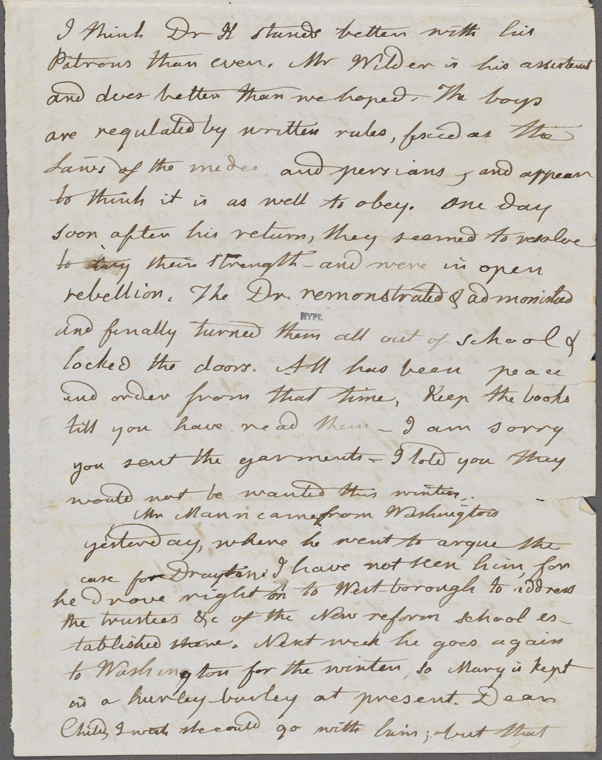 I think Dr K stands better with his
Patrons than ever. Mr Wilder is his assistent
and does better than we hoped. The boys
are regulated by written rules, fixed as the
Laws of the medes and persians, and appear
to think it is as well to obey. One day
soon after his return, they seemed to resolve
to try their strength - and were in open
rebellion. The Dr. remonstrated & admonished
NYPL
and finally turned them all out of school &
locked the doors. All has been peace
and order from that time. Keep the books
till you have read them - I am sorry
you sent the garments - I told you they
would not be wanted this winter.
Mr Mann came from Washington
yesterday, where he went to argue the
case for Drayton. I have not seen him, for
he drove right on to Westborough to address
the trustees &c of the New reform school es-
tablished there. Next week he goes again
to Washington for the winter, so Mary is kept
in a hurley-burley at present. Dear
Child, I wish she could go with him; but that